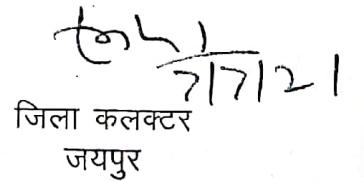 7/7/21
जिला कलक्टर
जयपुर